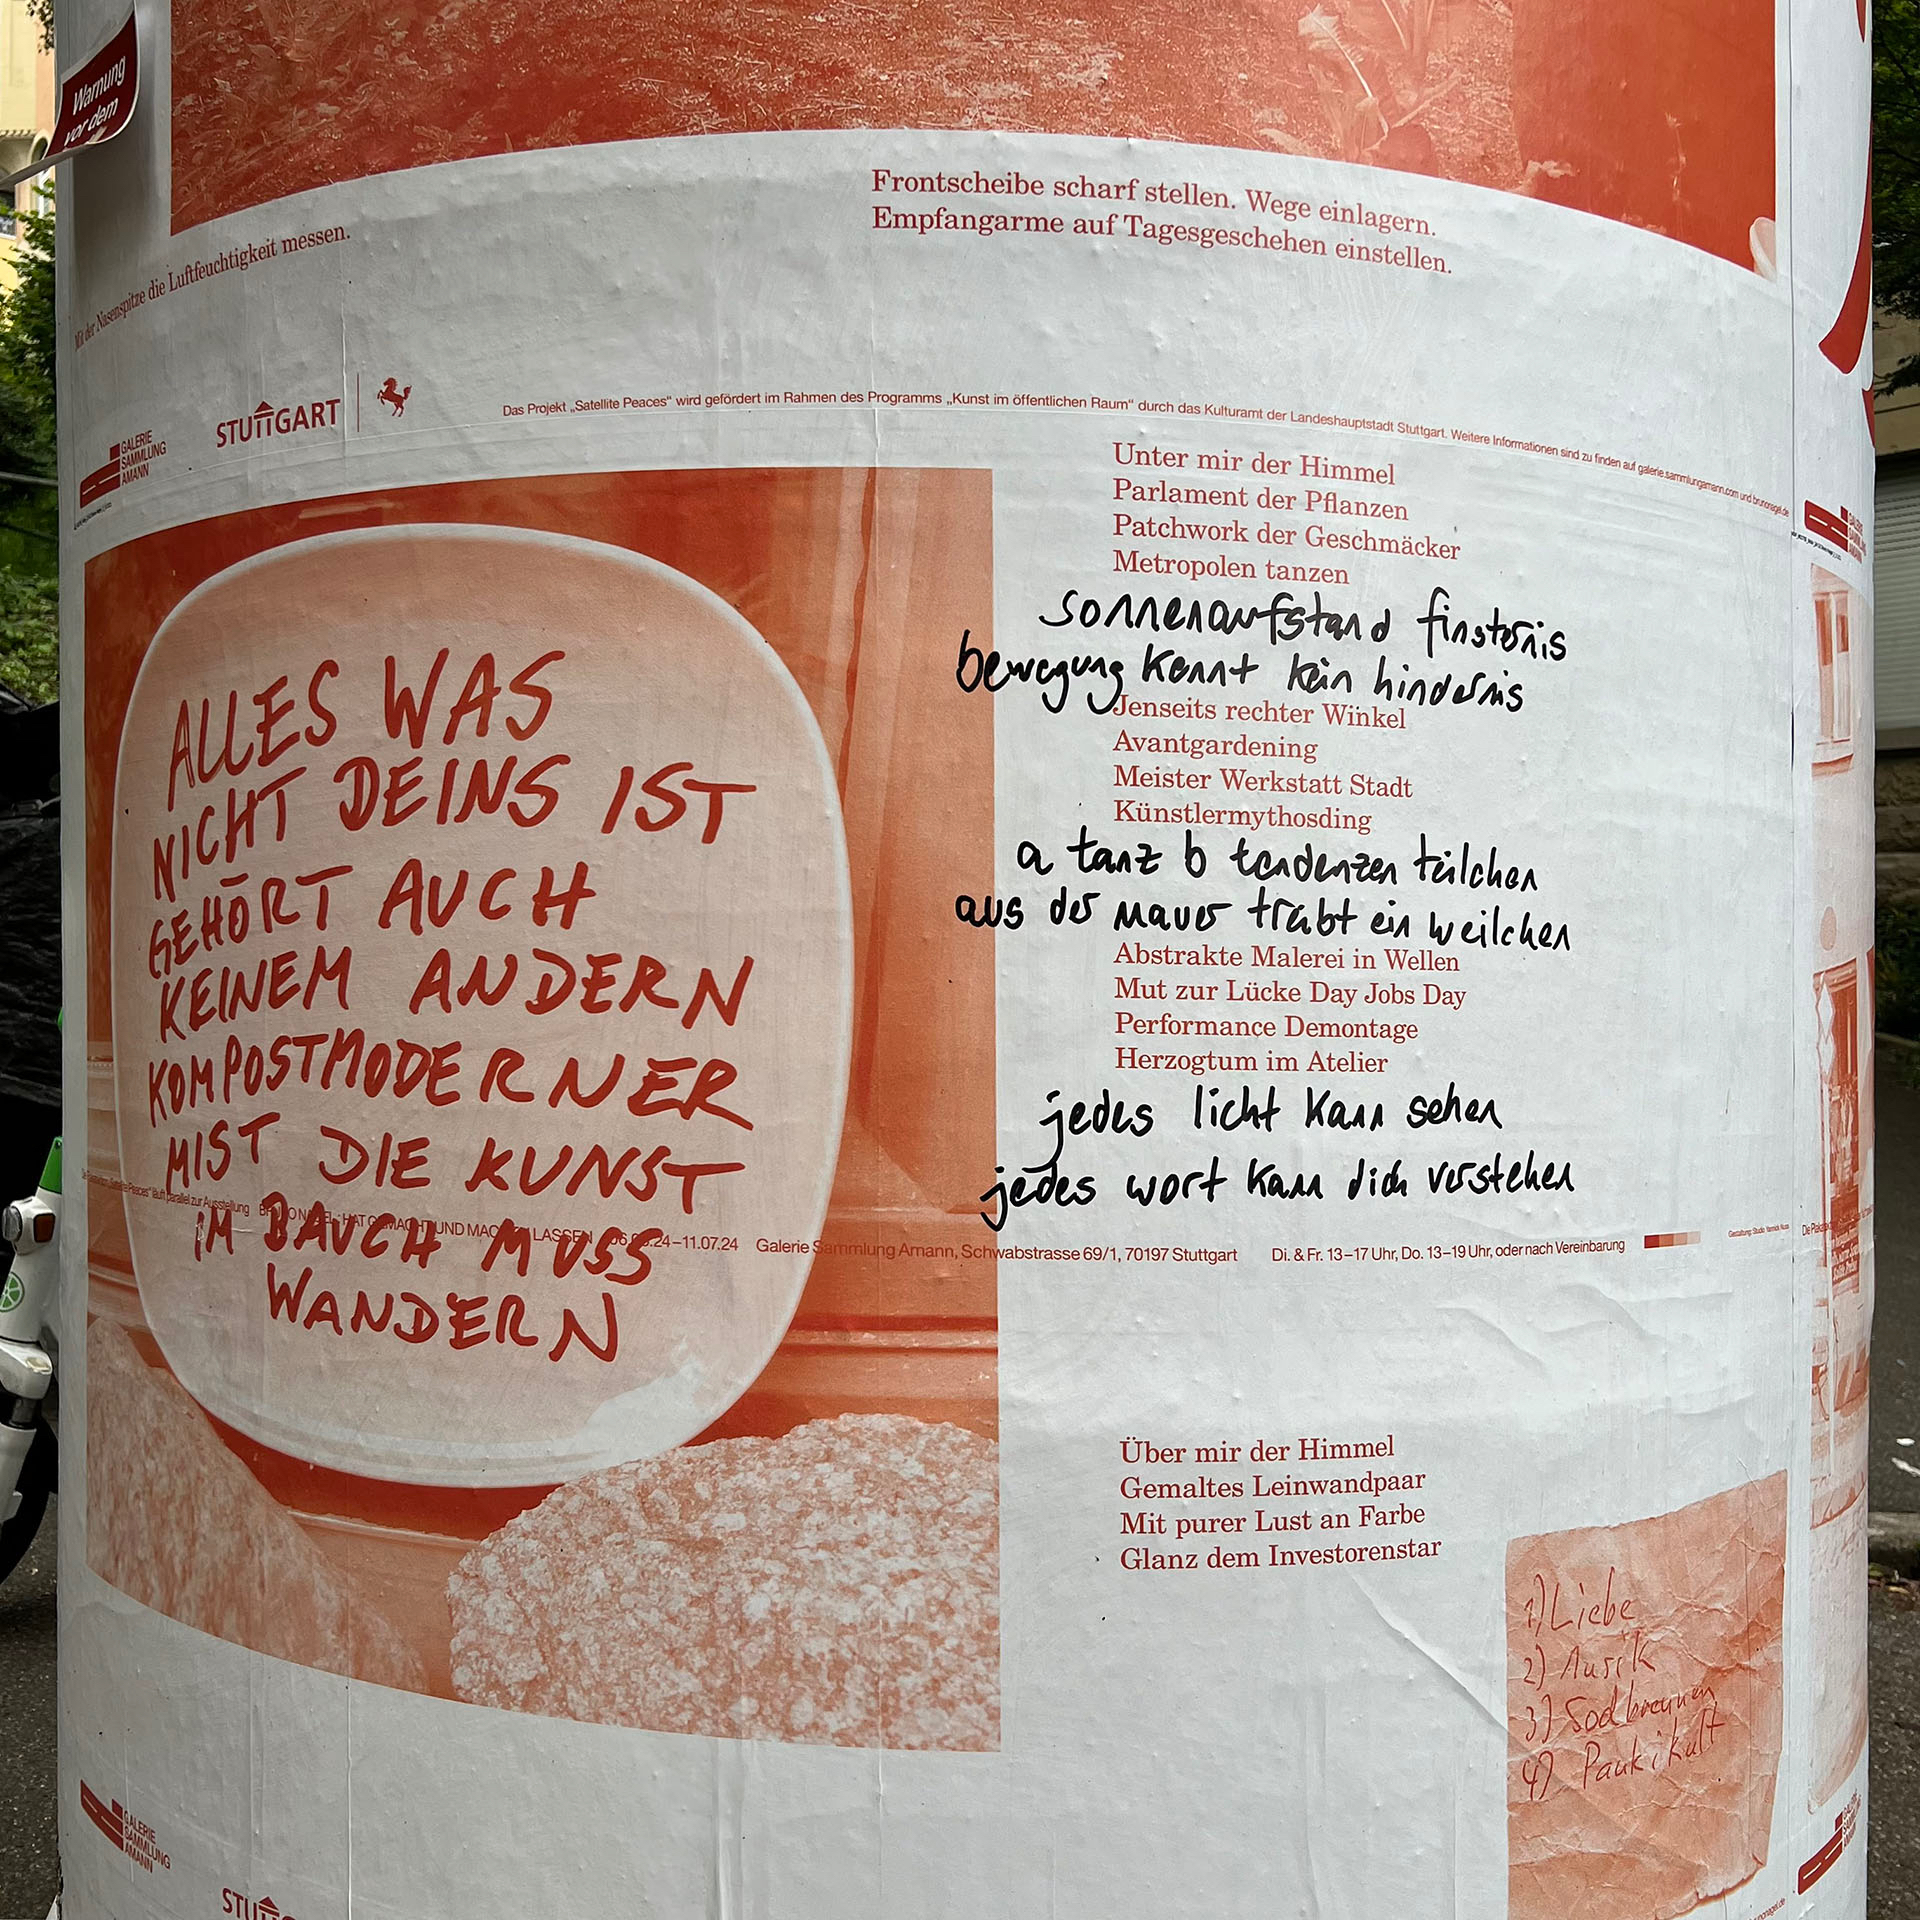 Warnung
vor dem
Mit der Nasenspitze die Luftfeuchtigkeit messen.
Frontscheibe scharf stellen. Wege einlagern.
Empfangarme auf Tagesgeschehen einstellen.
GALERIE
SAMMLUNG
AMANN
STUTTGART
Das Projekt „Satellite Peaces“ wird gefördert im Rahmen des Programms „Kunst im öffentlichen Raum“ durch das Kulturamt der Landeshauptstadt Stuttgart. Weitere Informationen sind zu finden auf galerie.sammlungamann.com und brunonagel.de
ALLES WAS
NICHT DEINS IST
GEHÖRT AUCH
KEINEM ANDERN
KOMPOSTMODERNER
MIST DIE KUNST
IM BAUCH MUSS
WANDERN
Unter mir der Himmel
Parlament der Pflanzen
Patchwork der Geschmäcker
Metropolen tanzen
sonnenaufstand finsternis
bewegung kennt kein hindernis
Jenseits rechter Winkel
Avantgardening
Meister Werkstatt Stadt
Künstlermythosding
a tanz b tendenzen teilchen
aus der mauer treibt ein weilchen
Abstrakte Malerei in Wellen
Mut zur Lücke Day Jobs Day
Performance Demontage
Herzogtum im Atelier
jedes licht kann sehen
jedes wort kann dich verstehen
"Satellite Peaces" läuft parallel zur Ausstellung HAT GEMACHT UND MACHEN LASSEN 24–11.07.24 Galerie Sammlung Amann, Schwabstrasse 69/1, 70197 Stuttgart Di. & Fr. 13–17 Uhr, Do. 13–19 Uhr, oder nach Vereinbarung
Über mir der Himmel
Gemaltes Leinwandpaar
Mit purer Lust an Farbe
Glanz dem Investorenstar
1) Liebe
2) Musik
3) Sodbrennen
4) Paukikult
GALERIE
SAMMLUNG
AMANN